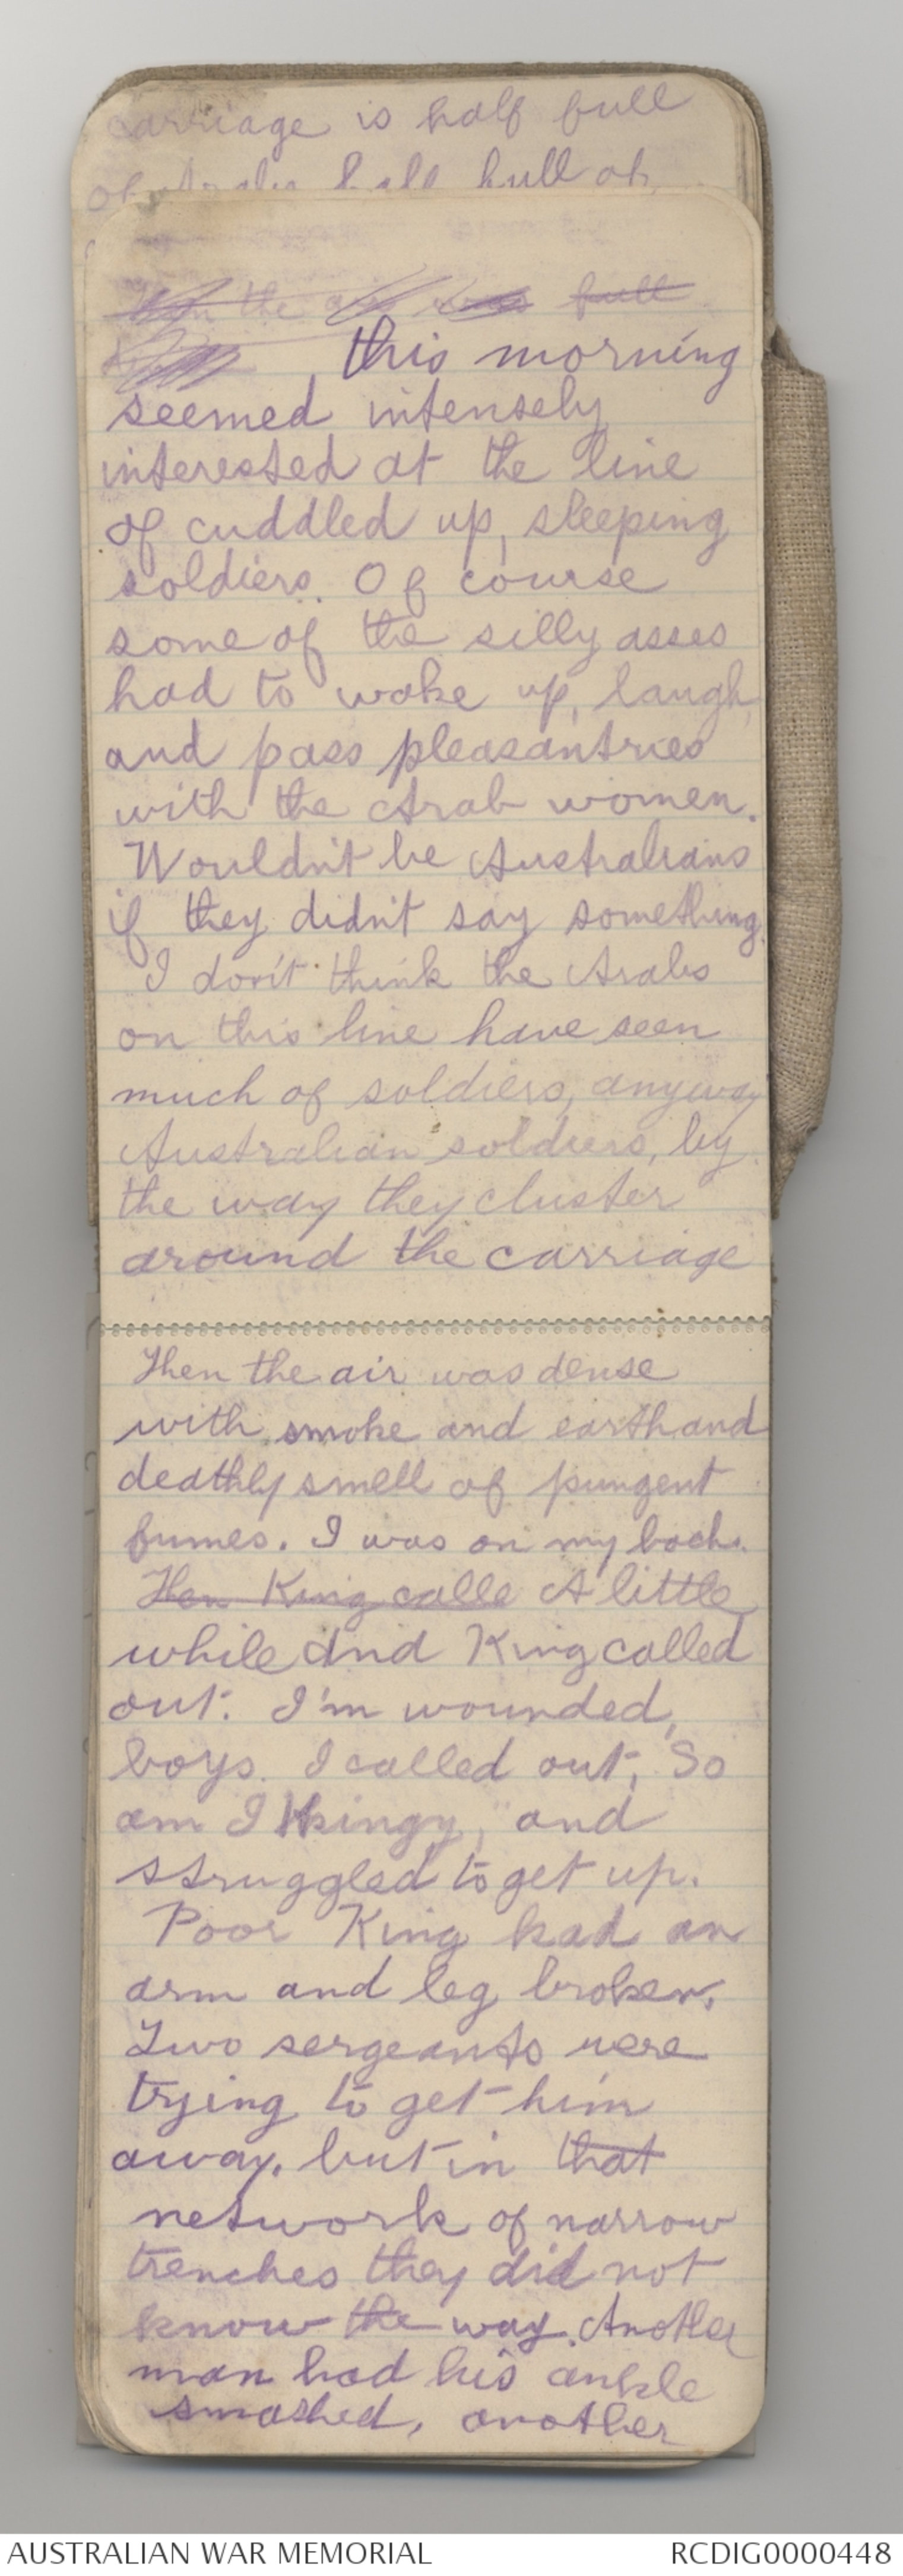 carriage is half full
of Arabs half full of
the full
this morning
seemed intensely
interested at the line
of cuddled up, sleeping
soldiers. Of course
some of the silly asses
had to wake up, laugh,
and pass pleasantries
with the Arab women.
Wouldn't be Australians
if they didn't say something.
I don't think the Arabs
on this line have seen
much of soldiers, anyway
Australian soldiers, by
the way they cluster
around the carriage
Then the air was dense
with smoke and earth and
deathly smell of pungent
fumes. I was on my back.
King calle A little
while And King called
out: I'm wounded,
boys. I called out, "So
am I Kingy," and
struggled to get up.
Poor King had an
arm and leg broken.
Two sergeants were
trying to get him
away, but in that
network of narrow
trenches they did not
know the way. Another
man had his ankle
smashed, another
AUSTRALIAN WAR MEMORIAL
RCDIG0000448